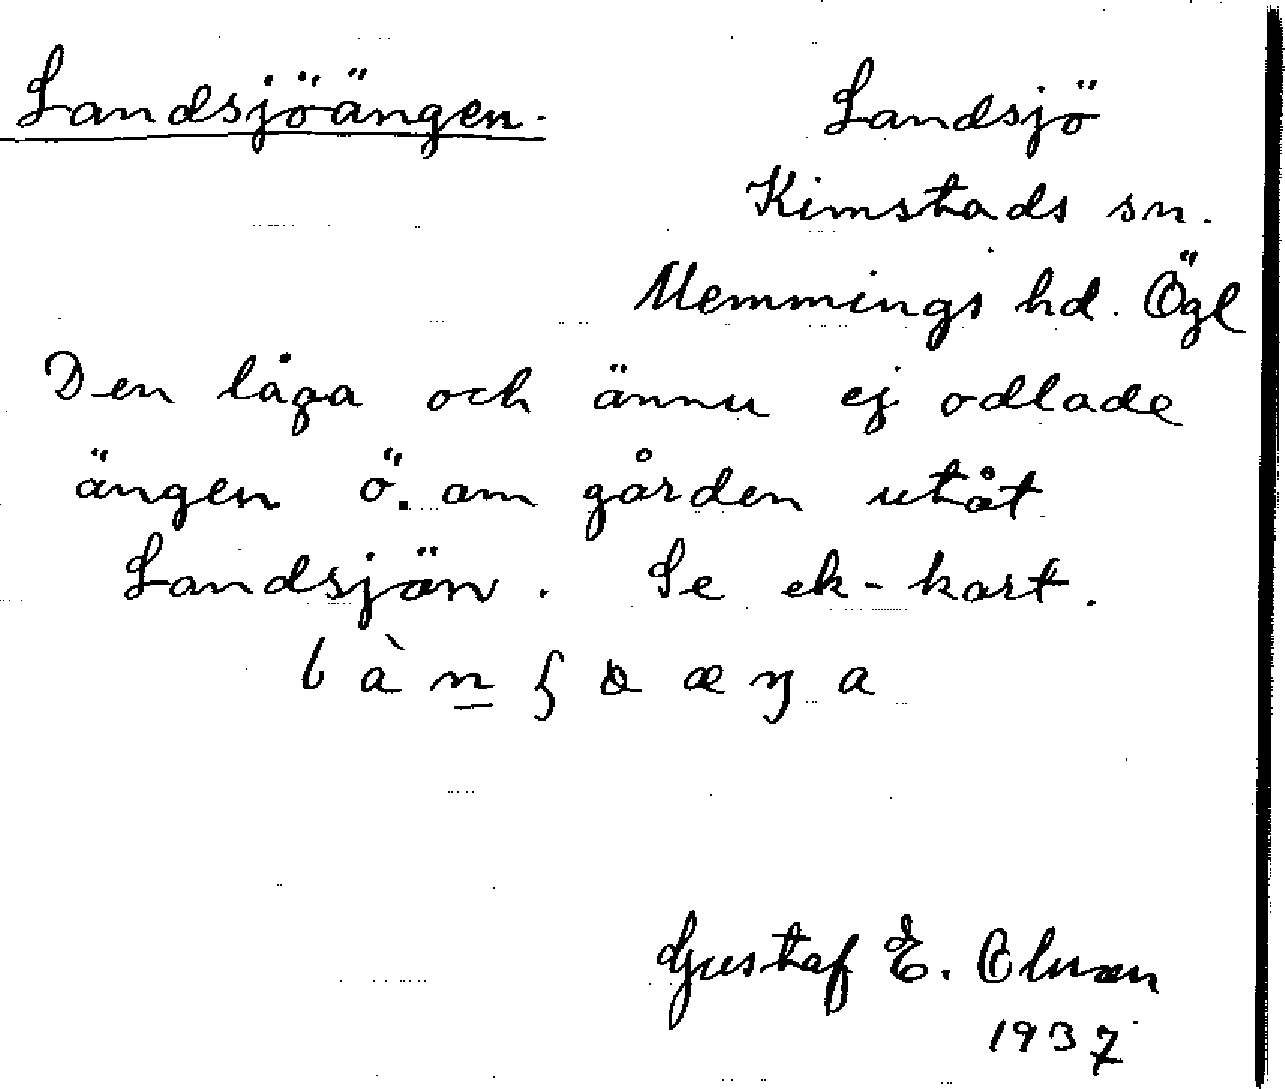 Landsjöängen.
Landsjö
Kimstads sn.
Memmings hd. Ögl
Den låga och ännu ej odlade
ängen ö. om gården utåt
Landsjön. Se ek-kart.
Gustaf E. Olsson
1937